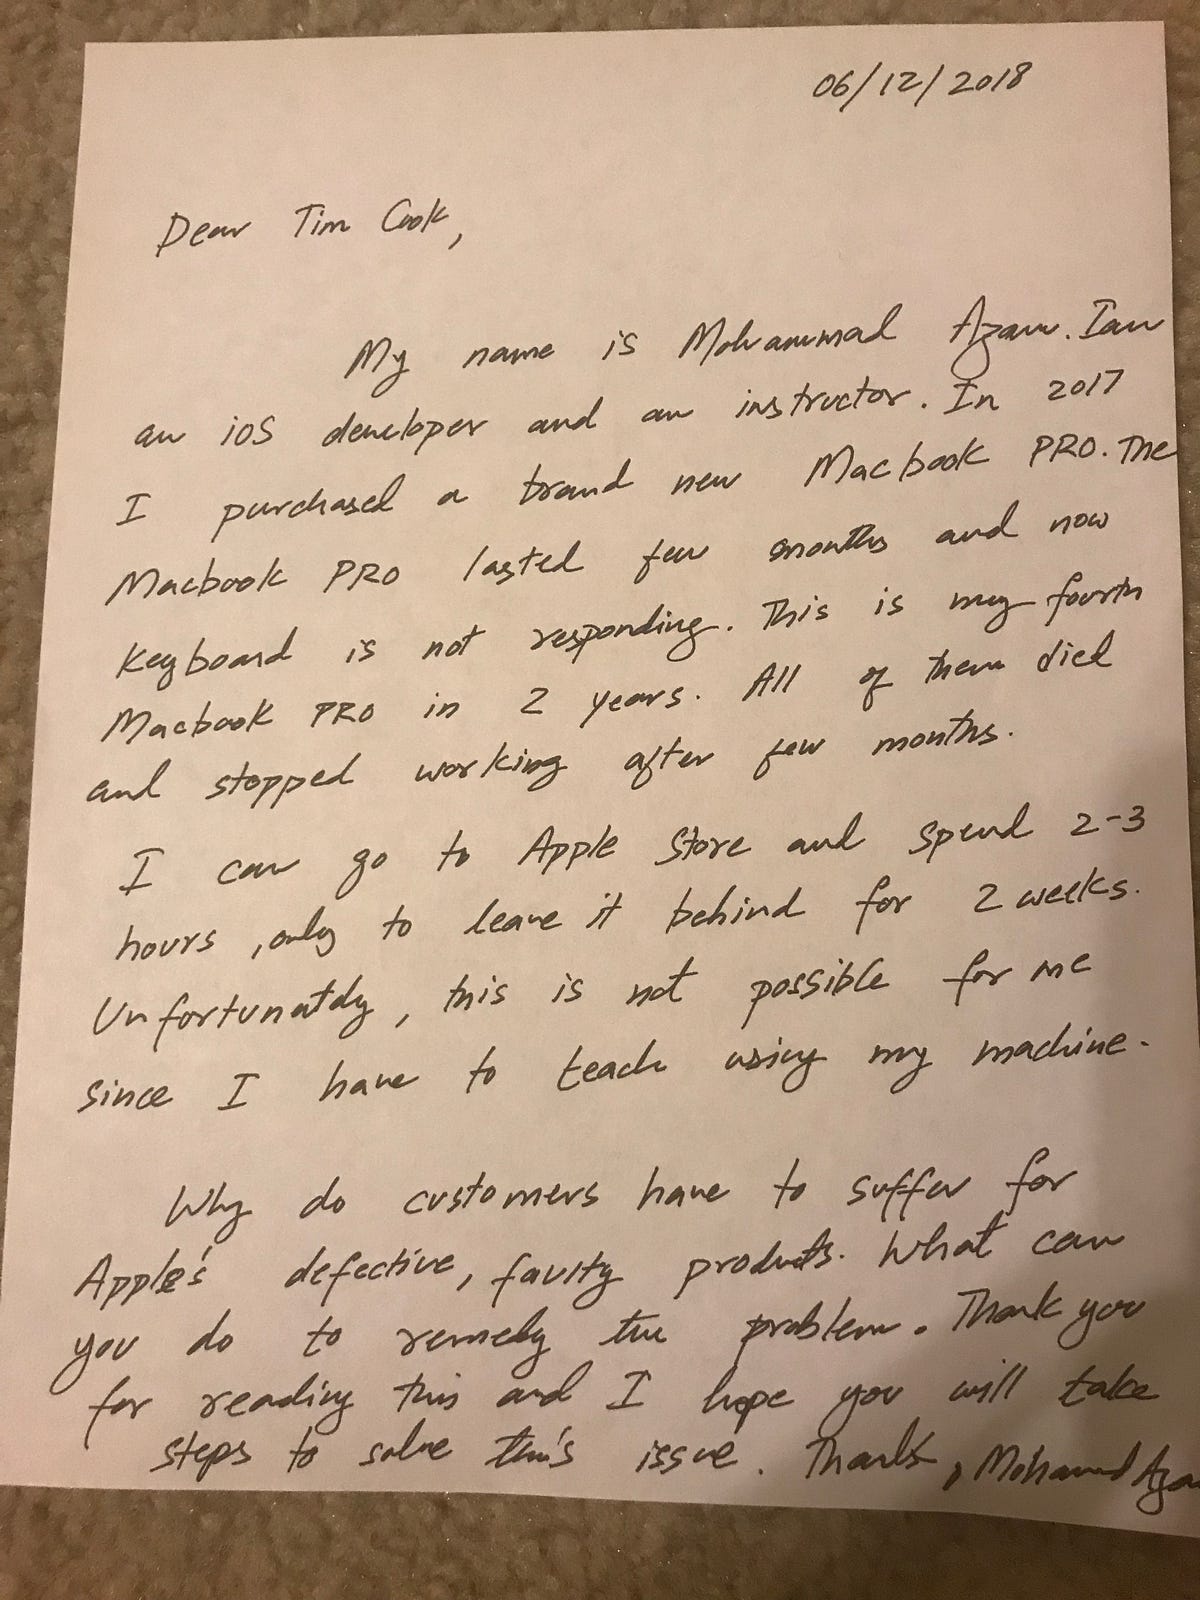 06/12/2018
Dear Tim Cook,
My name is Mohammad Azam. I am
an iOS developer and an instructor. In 2017
I purchased a brand new Macbook PRO. The
Macbook PRO lasted few months and now
Keyboard is not responding. This is my fourth
Macbook PRO in 2 years. All of them died
and stopped working after few months.
I can go to Apple Store and spend 2-3
hours, only to leave it behind for 2 weeks.
Unfortunately, this is not possible for me
since I have to teach using my machine.
Why do customers have to suffer for
Apple's defective, faulty products. What can
you do to remedy the problem. Thank you
for reading this and I hope you will take
steps to solve this issue. Thanks, Mohammad Azam